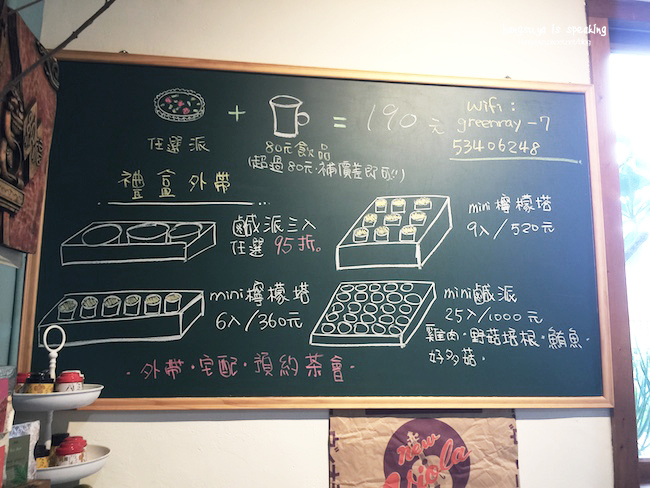 is speaking
+ = 190元
任選派
80元飲品
(超過80元·補價差即可!)
Wifi:
greenray-7
53406248
禮盒外帶
鹹派三入
任選 95折。
mini檸檬塔
9入/520元
mini檸檬塔
6入/360元
mini鹹派
25入/1000元
雞肉·野菇培根·鮪魚·
好多菇·
·外帶·宅配·預約茶會·
New
Viola